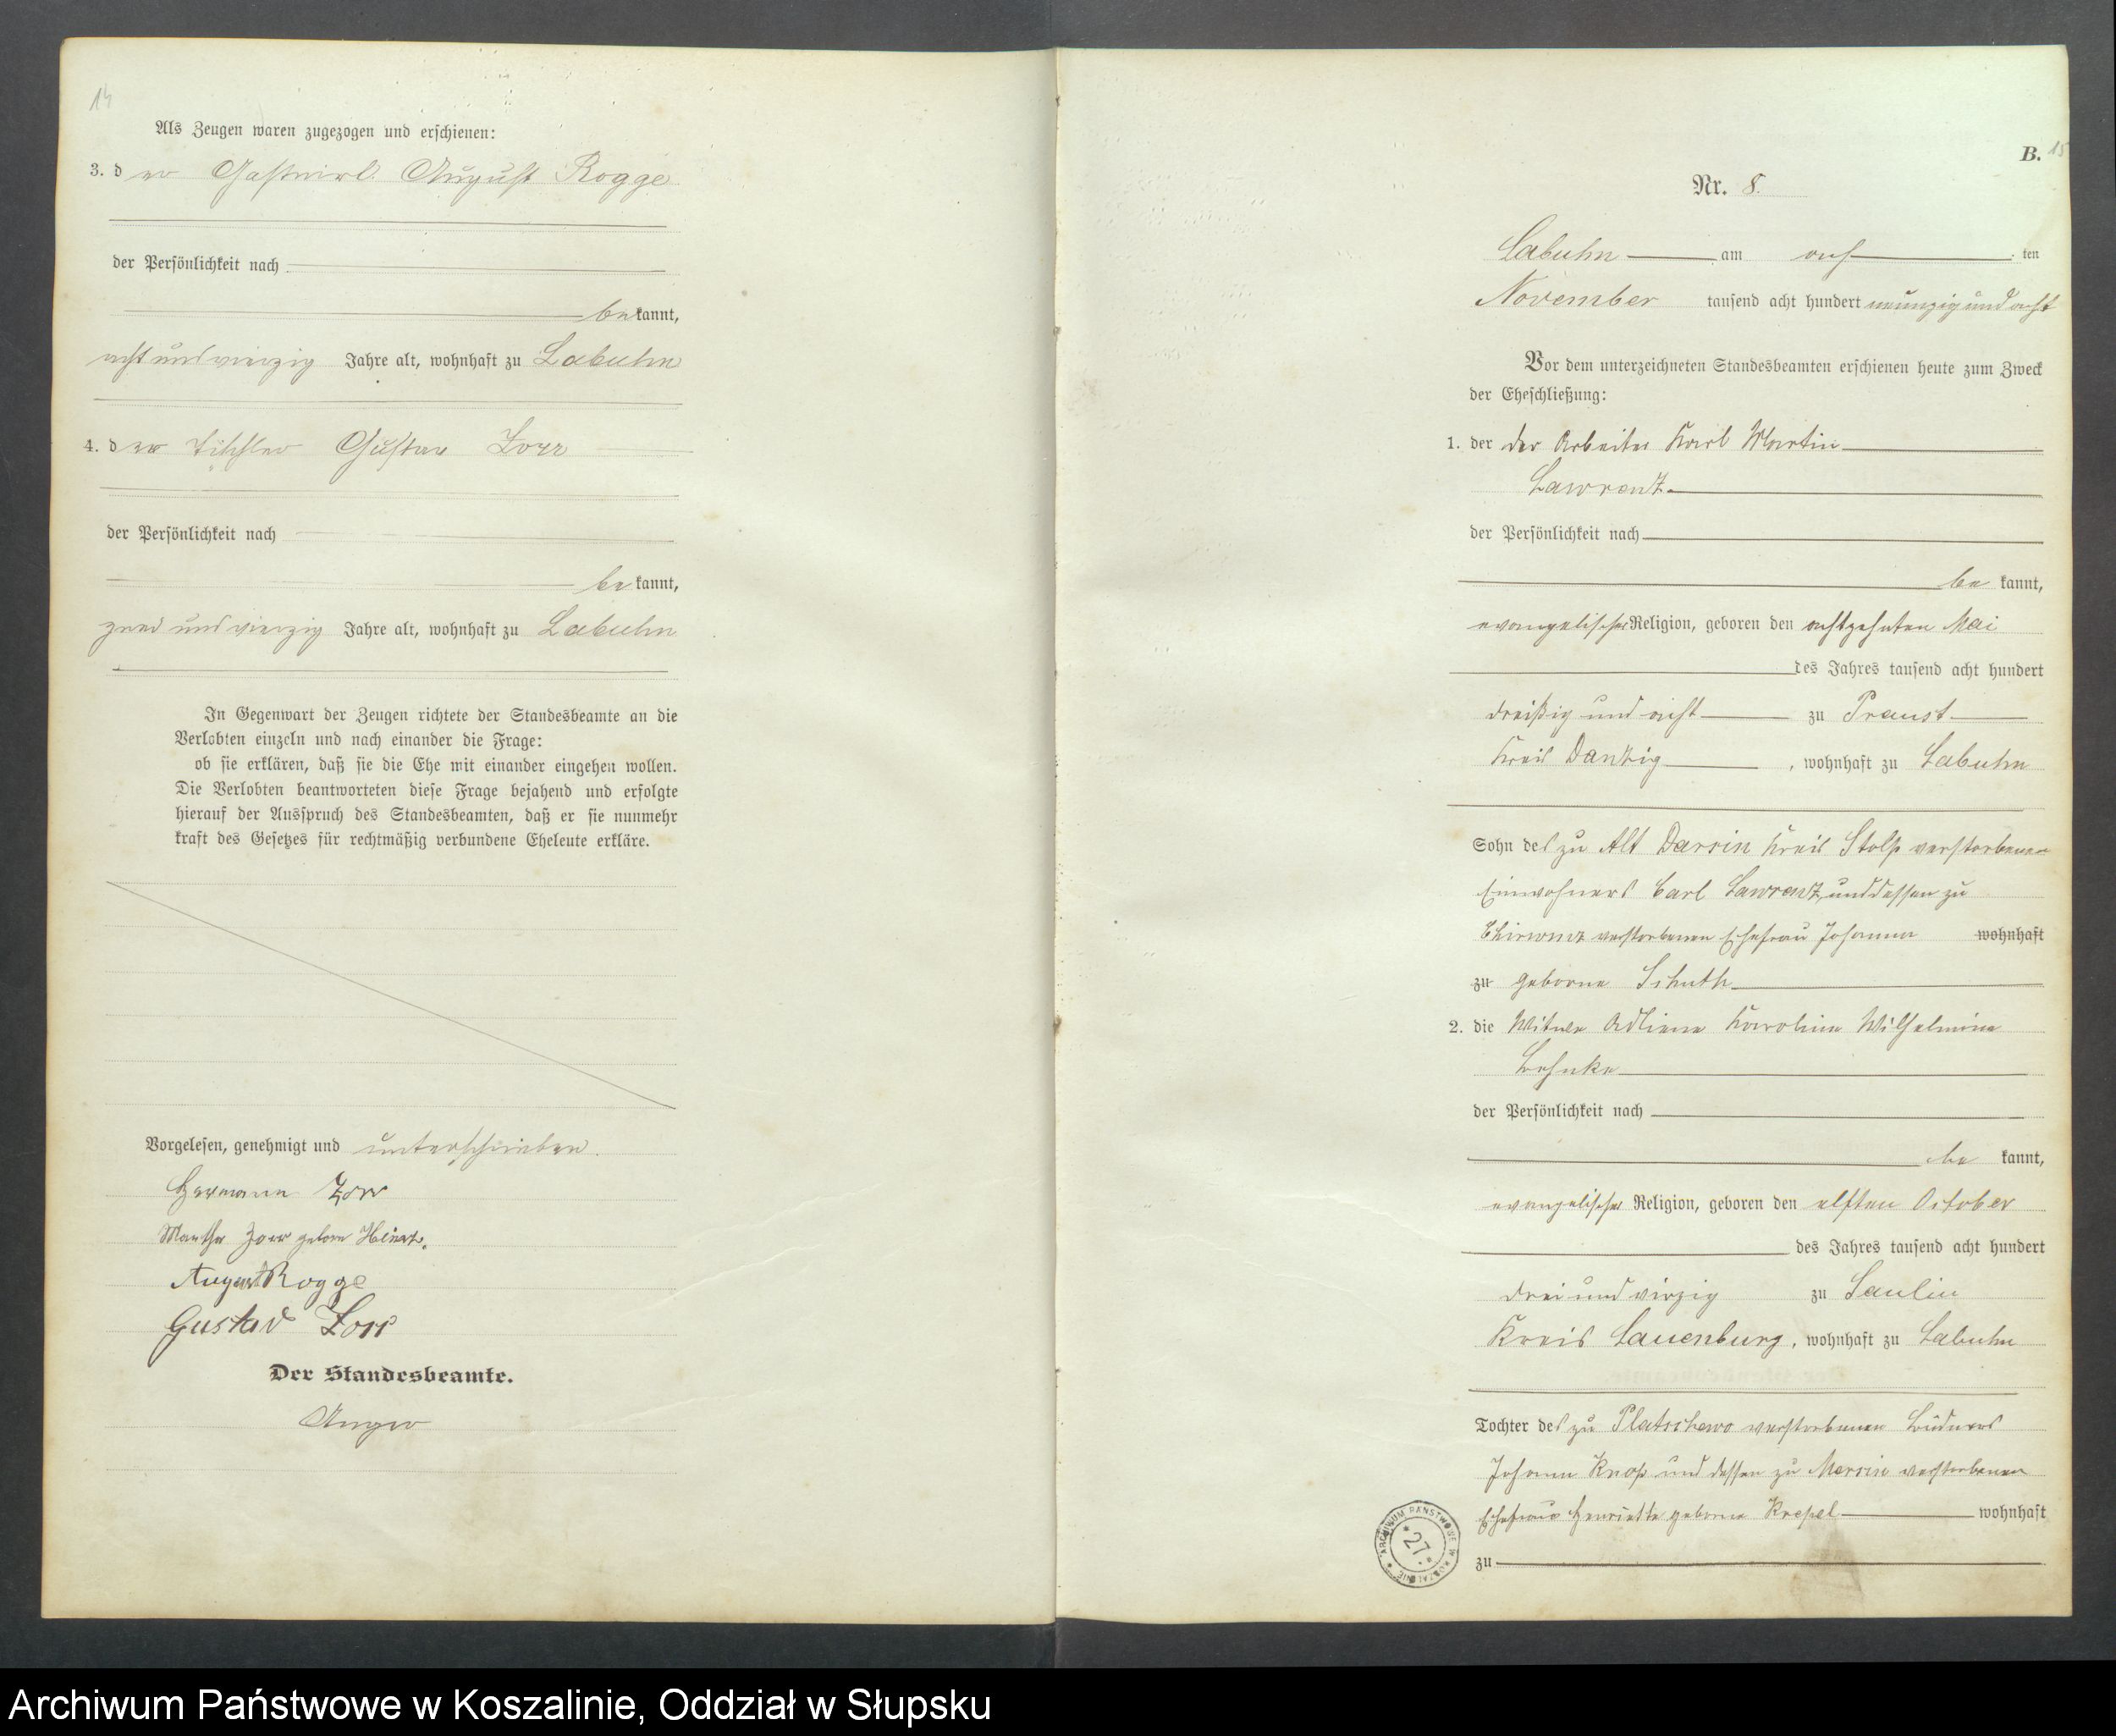 14
Als Zeugen waren zugezogen und erschienen:
3. der Gastwirt August Rogge
der Persönlichkeit nach
bekannt,
acht und vierzig Jahre alt, wohnhaft zu Labuhn
4. der Tischler Gustav Zorr
der Persönlichkeit nach
bekannt,
zwei und vierzig Jahre alt, wohnhaft zu Labuhn
In Gegenwart der Zeugen richtete der Standesbeamte an die
Verlobten einzeln und nach einander die Frage:
ob sie erklären, daß sie die Ehe mit einander eingehen wollen.
Die Verlobten beantworteten diese Frage bejahend und erfolgte
hierauf der Ausspruch des Standesbeamten, daß er sie nunmehr
kraft des Gesetzes für rechtmäßig verbundene Eheleute erkläre.
Vorgelesen, genehmigt und unterschrieben.
Hermann Zorr
Martha Zorr geborn
August Rogge
Gustav Zorr
Der Standesbeamte.
B. 15
Nr. 8.
Labuhn am acht ten
November tausend acht hundert neunzig und acht
Vor dem unterzeichneten Standesbeamten erschienen heute zum Zweck
der Eheschließung:
1. der der Arbeiter Karl Martin
Lawrenz
der Persönlichkeit nach
be kannt,
evangelischer Religion, geboren den achtzehnten Mai
des Jahres tausend acht hundert
dreißig und acht zu Praust
Kreis Danzig, wohnhaft zu Labuhn
Sohn des zu Alt Darsin Kreis Stolp verstorbenen
Einwohners Carl Lawrenz, und dessen zu
verstorbenen Ehefrau Johanna wohnhaft
zu geborne Schuth
2. die Witwe Adline Karoline Wilhelmine
Behnke
der Persönlichkeit nach
be kannt,
evangelischer Religion, geboren den elften October
des Jahres tausend acht hundert
drei und virzig zu Saulin
Kreis Lauenburg, wohnhaft zu Labuhn
Tochter des zu Platschewo verstorbenen Büdners
Johann Knop und dessen zu Mersin verstorbenen
Ehefrau Henriette geborne Krepel wohnhaft
zu
ARCHIWUM PAŃSTWOWE W KOSZALINIE
27
Archiwum Państwowe w Koszalinie, Oddział w Słupsku